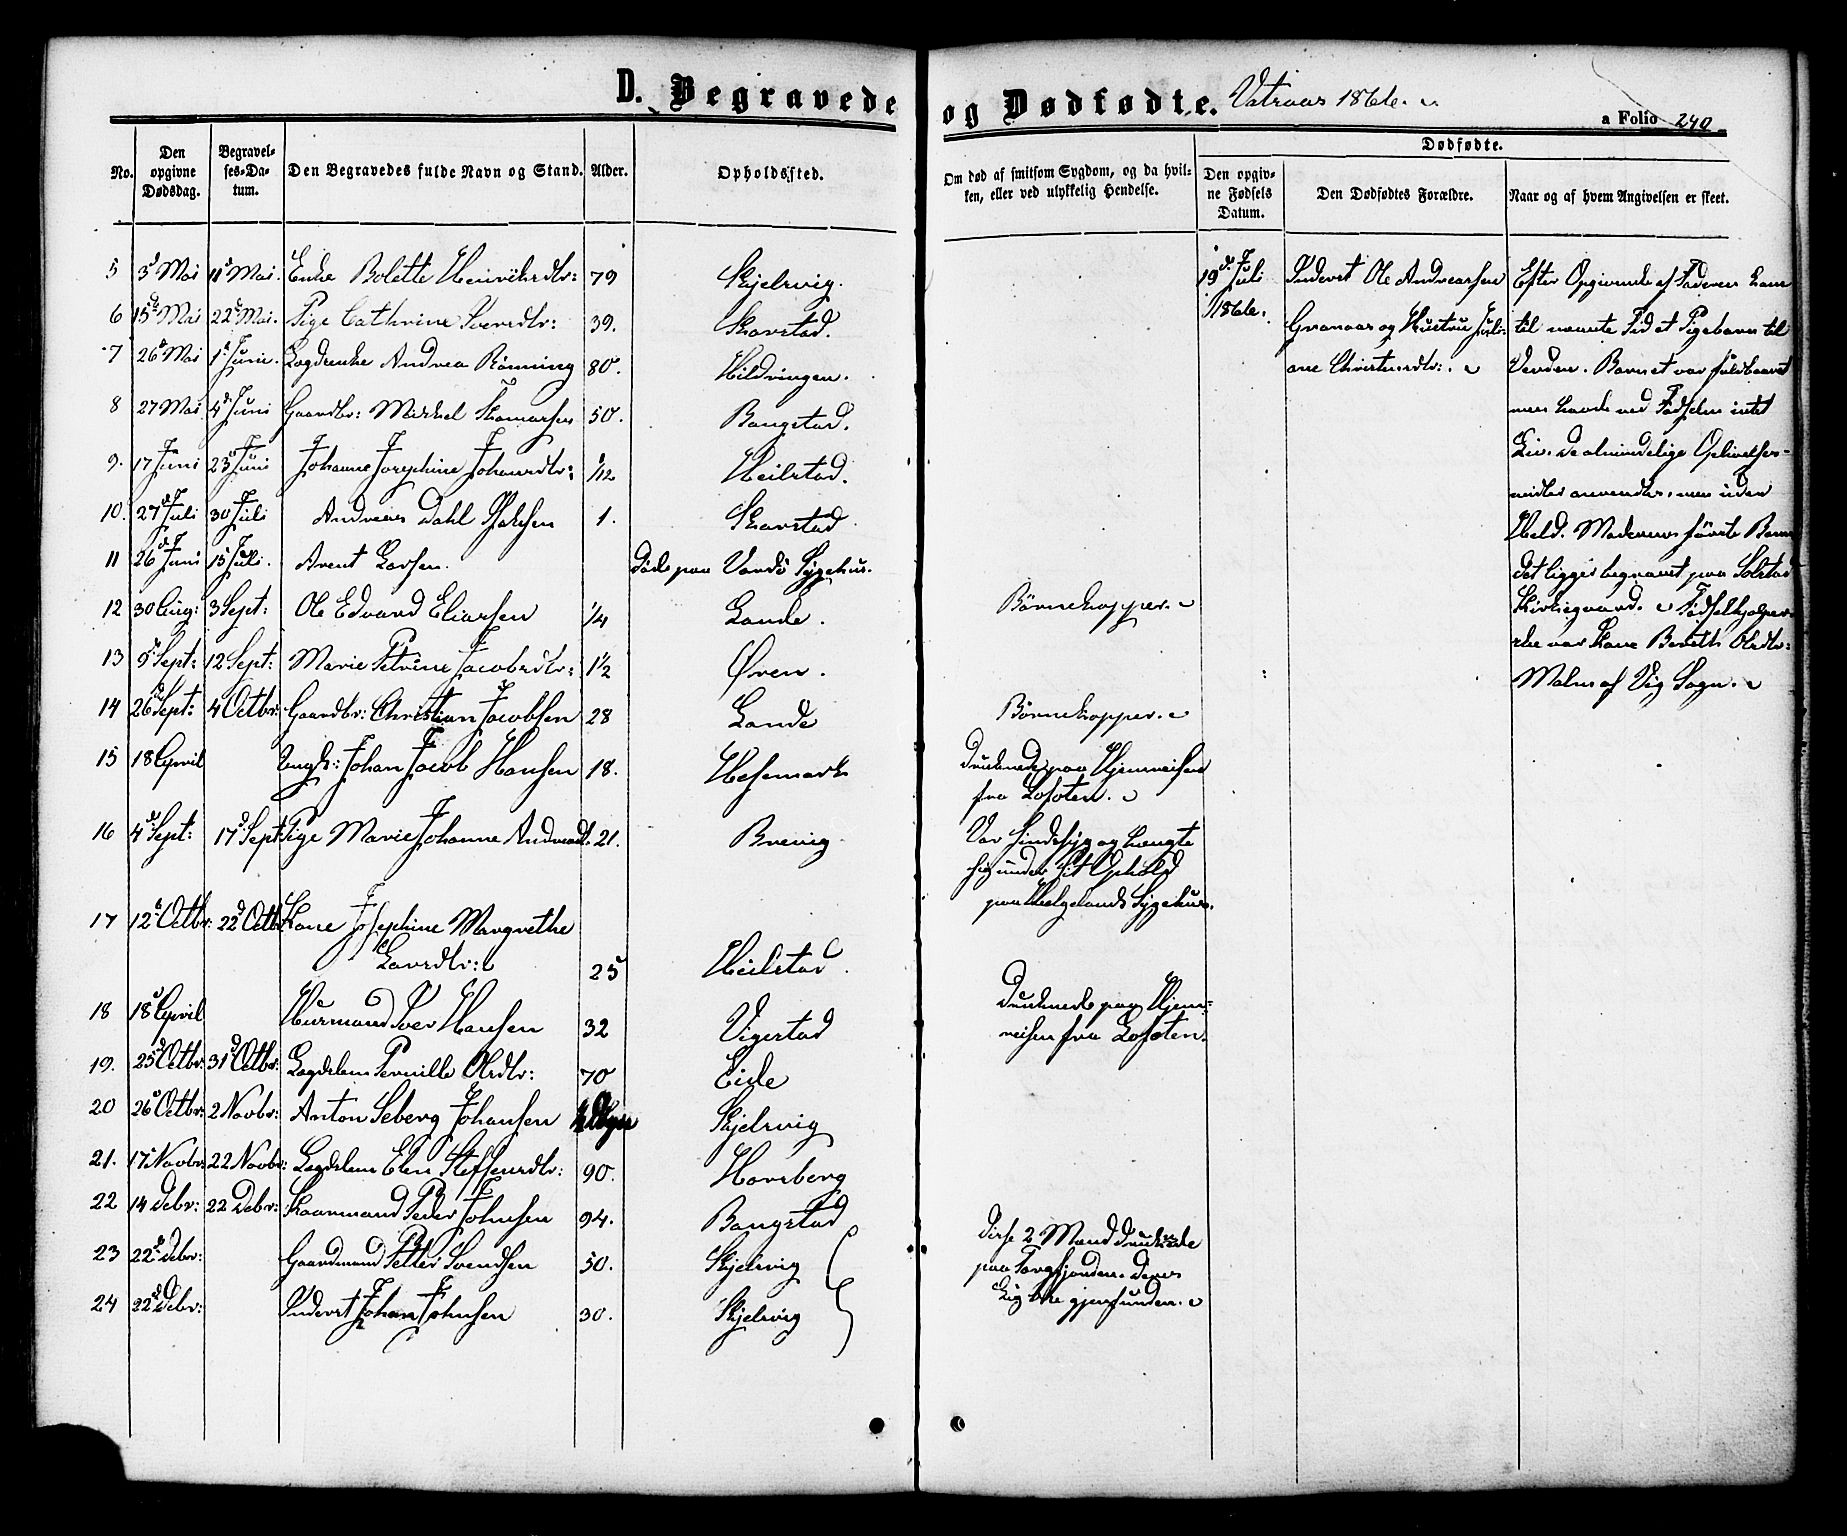 D. Begravede og Dødfødte. Vatraas 1866.
a Folio 240
No. Den opgivne Dødsdag. Begravelses-Datum. Den Begravedes fulde Navn og Stand. Alder. Opholdssted. Om død af smitsom Sygdom, og da hvilken, eller ved ulykkelig Hendelse.
Dødfødte.
Den opgivne Fødsels Datum. Den Dødfødtes Forældre. Naar og af hvem Angivelsen er skeet.
5 3 Mai 11 Mai Enke Bolette Heinrichsdtr: 79 Skjelsvig.
6 15 Mai 22 Mai. Pige Cathrine Iversdtr: 39. Skarstad.
7 26 Mai 1 Juni. Lægdsenke Andrea Rønning 80. Hildringen.
8 27 Mai 4 Juni Gaardbr: Mikkel Thomassen 50. Bangstad.
9. 17 Juni 23 Juni Johanne Josephine Johansdtr: 1/12 Heilstad.
10. 27 Juli 30 Juli Andreas Dahl 1. Skarstad.
11 26 Juni 15 Juli. Arent Larsen. Døde paa Vardø Sygehus.
12 30 Aug: 3 Sept: Ole Edvard Eliassen 1/4 Lande. Børnekopper.
13 5 Sept: 12 Sept: Marie Petrine Jacobsdtr: 1 1/2 Øren.
14 26 Sept: 4 Octbr: Gaardbr: Christian Jacobsen 28 Lande Børnekopper.
15 18 April Ungk: Johan Jacob Hansen 18. Hesemark Druknede paa Hjemreisen
fra Lofoten.
16 4 Sept: 17 Sept: Pige Marie Johanne Andreasdt. 21. Brevig Var sindssyg og hængte
sig under sit Ophold
paa Helgelands Sygehus.
17 12 Octbr: 22 Octbr: Kone Josephine Margrethe
Larsdtr: 25 Heilstad.
18 18 April Huusmand Iver Hansen 32 Vigestad Druknede paa Hjem-
reisen fra Lofoten.
19. 25 Octbr: 31 Octbr: Lægdslem Pernille Olsdtr: 70 Eide
20 26 Octbr: 2 Novbr: Anton Seberg Johansen Skjelsvig
21. 17 Novbr: 22 Novbr: Lægdslem Elen Steffensdtr: 90. Horsberg
22 14 Debr: 22 Debr: Kaarmand Peder Johnsen 94. Bangstad
23 22 Debr: Gaardmand Petter Svendsen 50. Skjelsvig Disse 2 Mænd druknede
paa Torgfjorden. Deres
24 22 Debr: Inderst Johan Johnsen 30. Skjelsvig Lig ikke gjenfundne.
19 Juli
1866.
Inderst Ole Andreassen
Granaas og Hustru Juli-
ane Christensdtr:.
Efter Opgivende af Faderen kom
til nævnte Tid et Pigebarn til
Verden. Barnet var fuldbaaret
men havde ved Fødselen intet
Liv. De almindelige Oplivelses-
midler anvendtes, men uden
Held. Moderens første Barn
det ligger begravet paa Solstad
Kirkegaard. Fødselhjælper-
ske var Kone Bereth Olsdtr:
Malm af Vig Sogn.